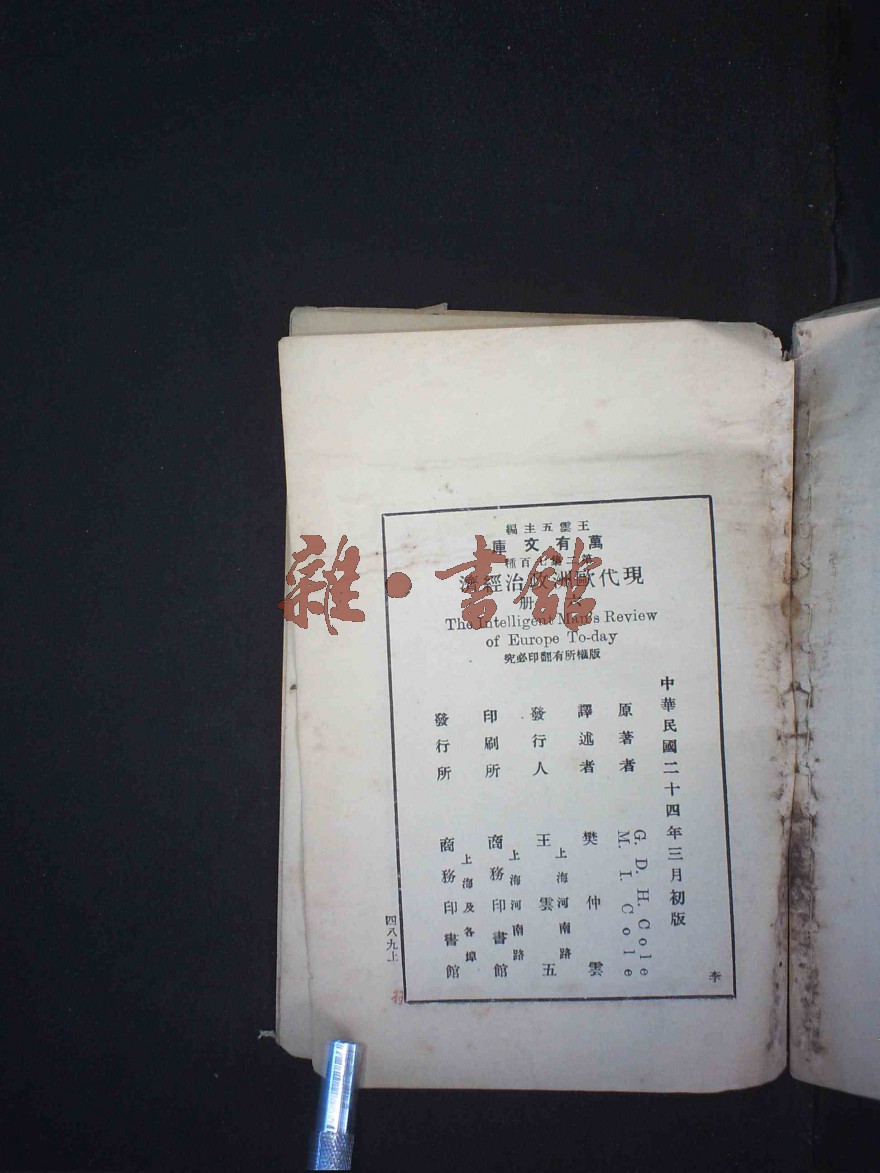 王雲五主編
萬有文庫
第二集七百種
現代歐洲政治經濟
六冊
The Intelligent Man's Review
of Europe To-day
版權所有翻印必究
中華民國二十四年三月初版
原著者 G. D. H. Cole
M. I. Cole
譯述者 樊仲雲
發行人 王雲五
上海河南路
印刷所 商務印書館
上海河南路
發行所 商務印書館
上海及各埠
四八九上
李
雜·書館